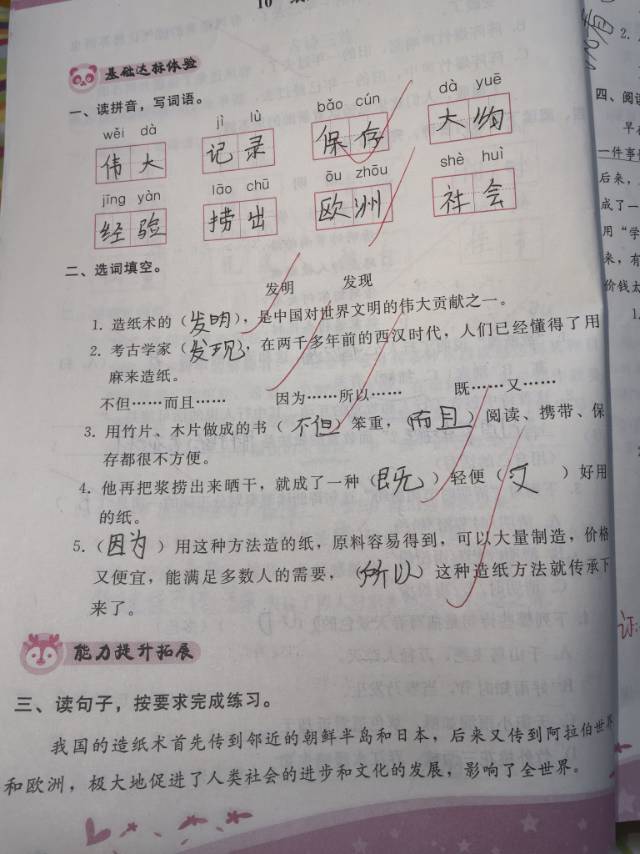 10
基础达标体验
一、读拼音，写词语。
wěi dà jì lù bǎo cún dà yuē
伟大 记录 保存 大约
jīng yàn lāo chū ōu zhōu shè huì
经验 捞出 欧洲 社会
二、选词填空。
发明 发现
1. 造纸术的（发明），是中国对世界文明的伟大贡献之一。
2. 考古学家（发现），在两千多年前的西汉时代，人们已经懂得了用
麻来造纸。
不但……而且…… 因为……所以…… 既……又……
3. 用竹片、木片做成的书（不但）笨重，（而且）阅读、携带、保
存都很不方便。
4. 他再把浆捞出来晒干，就成了一种（既）轻便（又）好用
的纸。
5.（因为）用这种方法造的纸，原料容易得到，可以大量制造，价格
又便宜，能满足多数人的需要，（所以）这种造纸方法就传承下
来了。
能力提升拓展
三、读句子，按要求完成练习。
我国的造纸术首先传到邻近的朝鲜半岛和日本，后来又传到阿拉伯世界
和欧洲，极大地促进了人类社会的进步和文化的发展，影响了全世界。
2.
四、阅读
早
一件事
后来，
成了一
用“学
来，有
价钱太
1.